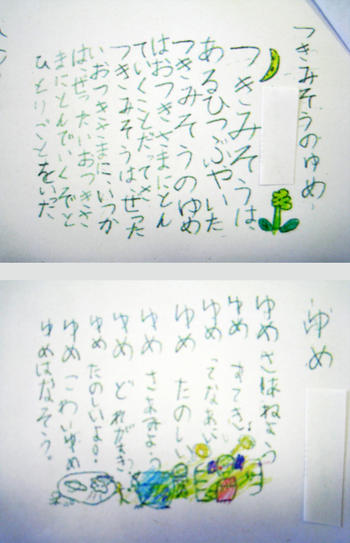 つきみそうのゆめ、
つきみそうは、
あるひつぶやいた
つきみそうのゆめ
はおつきさまにとん
でいくことだってさ
つきみそうは、ぜった
いおつきさまにいつか
はぜったいおつきさ
まにとんでいくぞと
ひとりごとをいった
ゆめ
ゆめ さあねよう
ゆめ すてき
ゆめ ってなあに
ゆめ たのしい
ゆめ さあみよう
ゆめ どれがすき
ゆめ たのしいよ。
ゆめ こわいゆめ
ゆめはなそう。